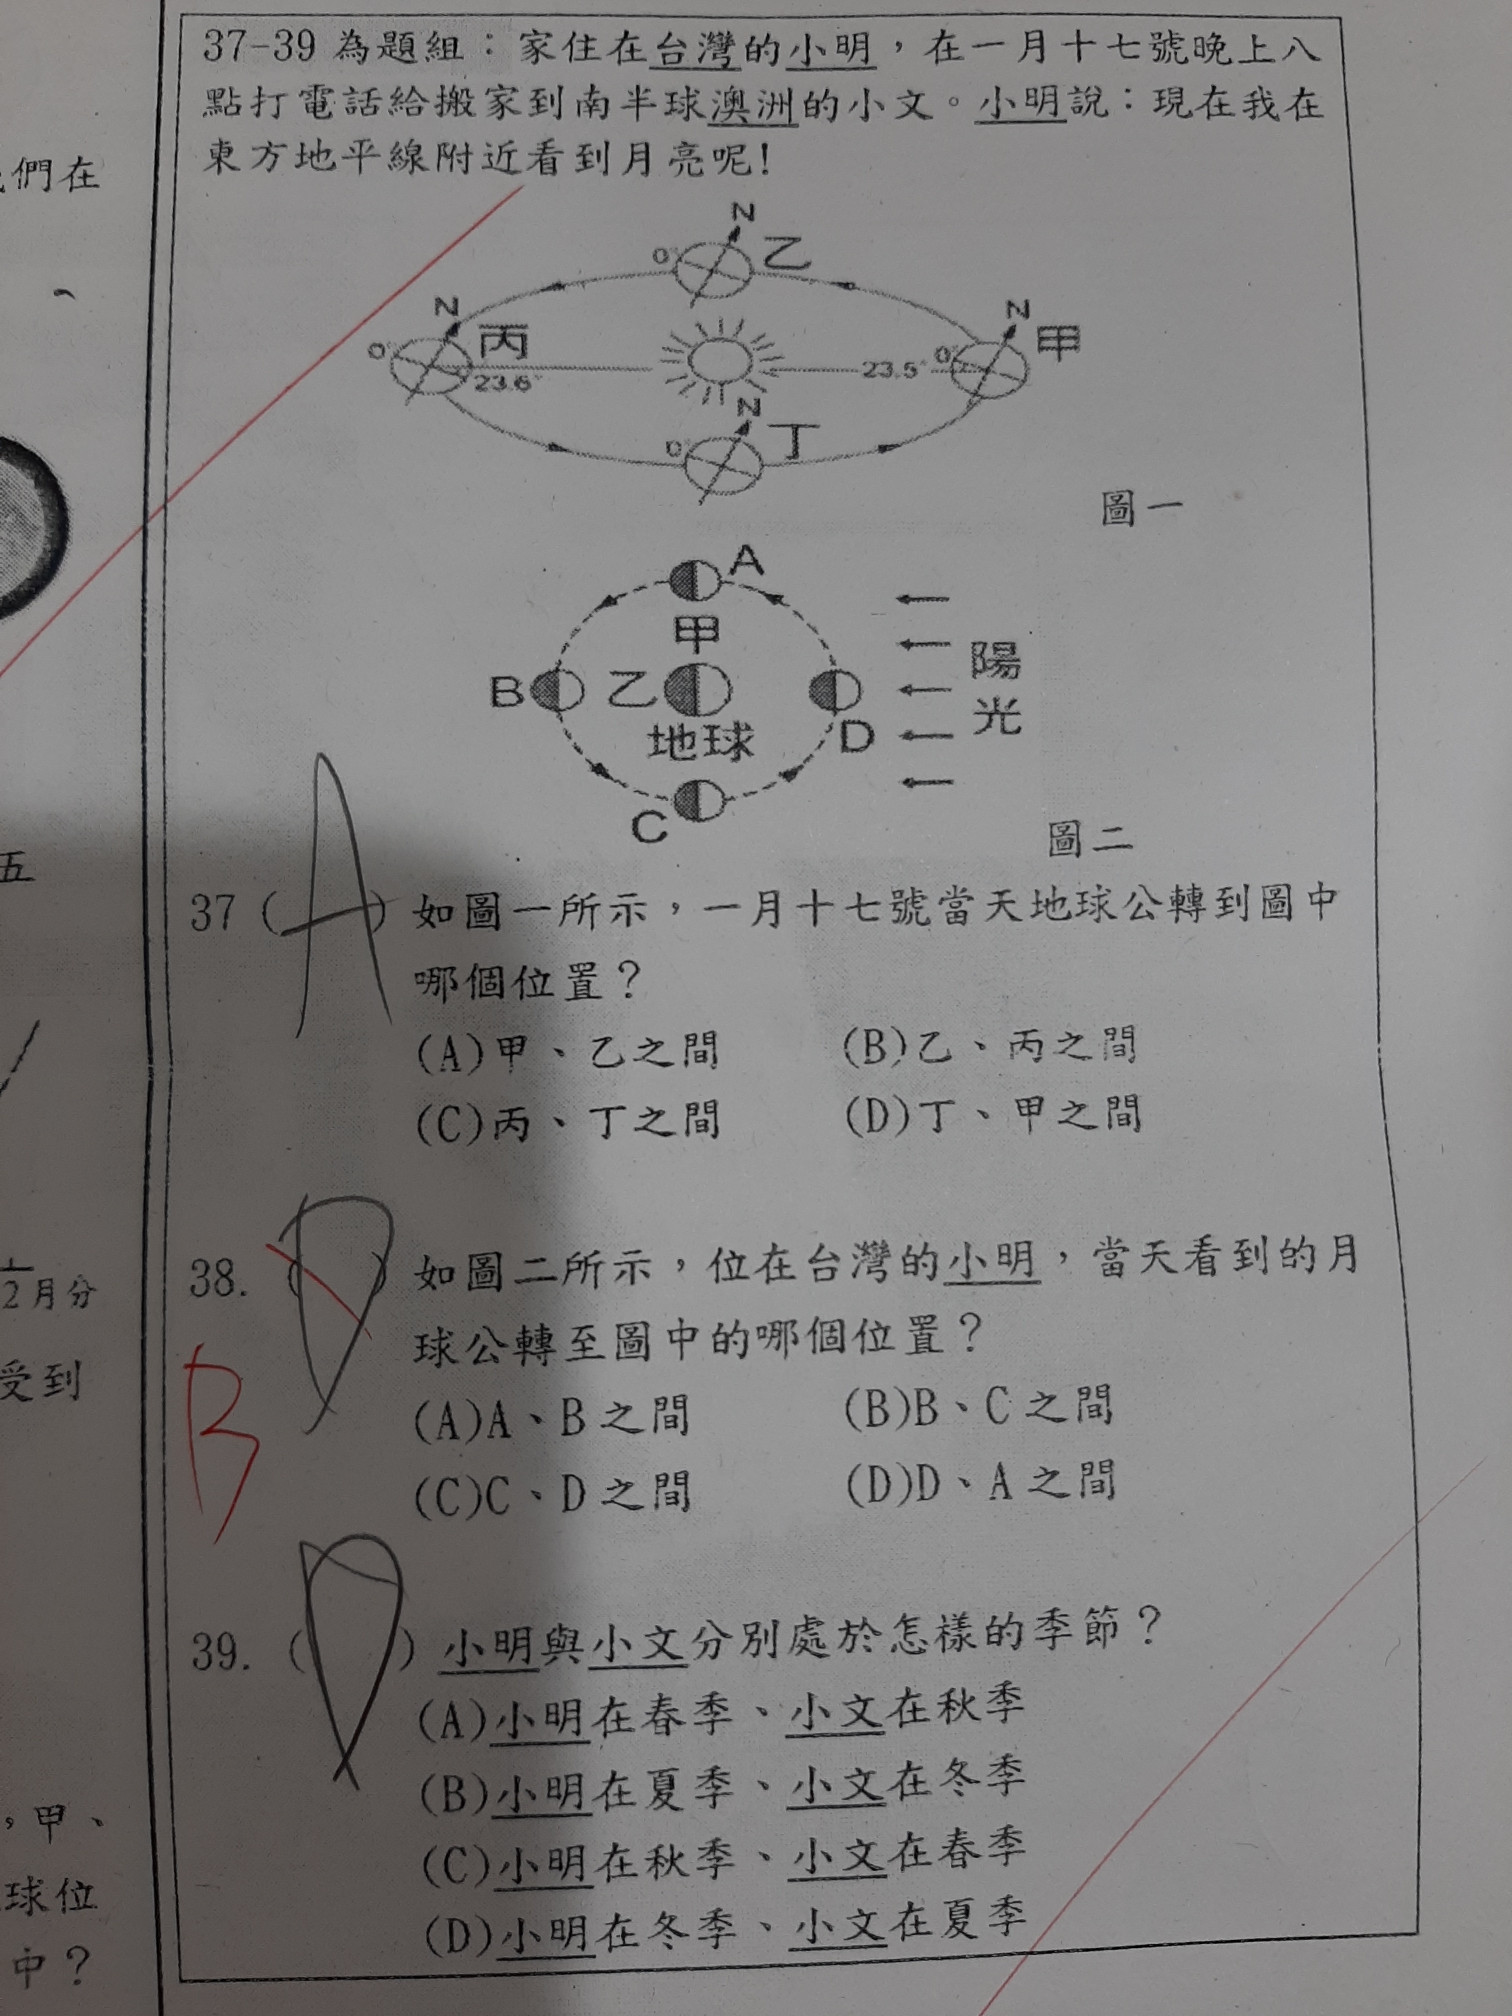 37-39 為題組：家住在台灣的小明，在一月十七號晚上八
點打電話給搬家到南半球澳洲的小文。小明說：現在我在
東方地平線附近看到月亮呢!
們在
、
N
0°
乙
N
0°
丙
23.6°
N
甲
23.5°
0°
N
0°
丁
圖一
A
甲
B
乙
地球
D
C
陽
光
圖二
五
37 (A) 如圖一所示，一月十七號當天地球公轉到圖中
哪個位置？
(A)甲、乙之間 (B)乙、丙之間
(C)丙、丁之間 (D)丁、甲之間
2月分
受到
38. (D) 如圖二所示，位在台灣的小明，當天看到的月
球公轉至圖中的哪個位置？
B
(A)A、B之間 (B)B、C之間
(C)C、D之間 (D)D、A之間
39. (D) 小明與小文分別處於怎樣的季節？
(A)小明在春季、小文在秋季
(B)小明在夏季、小文在冬季
(C)小明在秋季、小文在春季
(D)小明在冬季、小文在夏季
，甲、
球位
中？